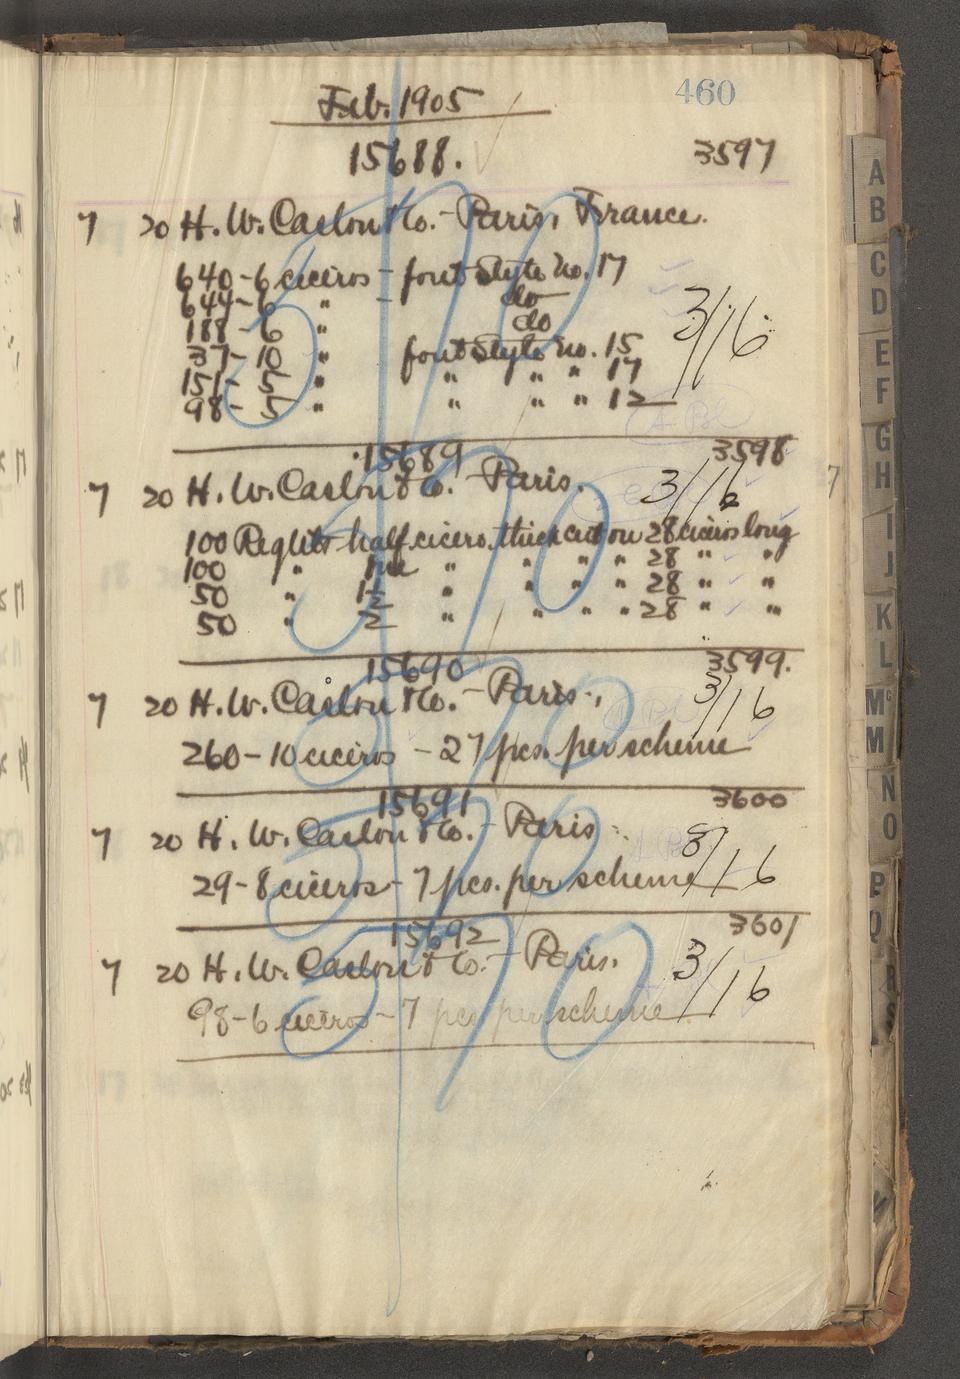 460
Feb. 1905
15688. 3597
7 20 H. W. Caslon & Co. - Paris, France.
640 - 6 ciceros - font style no. 17
644 - 6 " - do
188 - 6 " do
37 - 10 " font style no. 15
151 - 5 " " " " 17
98 - 5 " " " " 12
3/16
370
15689 3598
7 20 H. W. Caslon & Co. - Paris. 3/16
100 Reglets half cicero thick cut on 28 ciceros long
100 " one " " " " 28 " "
50 " 1½ " " " " 28 " "
50 " 2 " " " " 28 " "
370
15690 3599.
7 20 H. W. Caslon & Co. - Paris. 3/16
260 - 10 ciceros - 27 pcs. per scheme
370
15691 3600
7 20 H. W. Caslon & Co. - Paris. 3/16
29 - 8 ciceros - 7 pcs. per scheme
370
15692 3601
7 20 H. W. Caslon & Co. - Paris. 3/16
98 - 6 ciceros - 7 pcs per scheme
370
A
B
C
D
E
F
G
H
I
J
K
L
Mc
M
N
O
P
Q
R
S